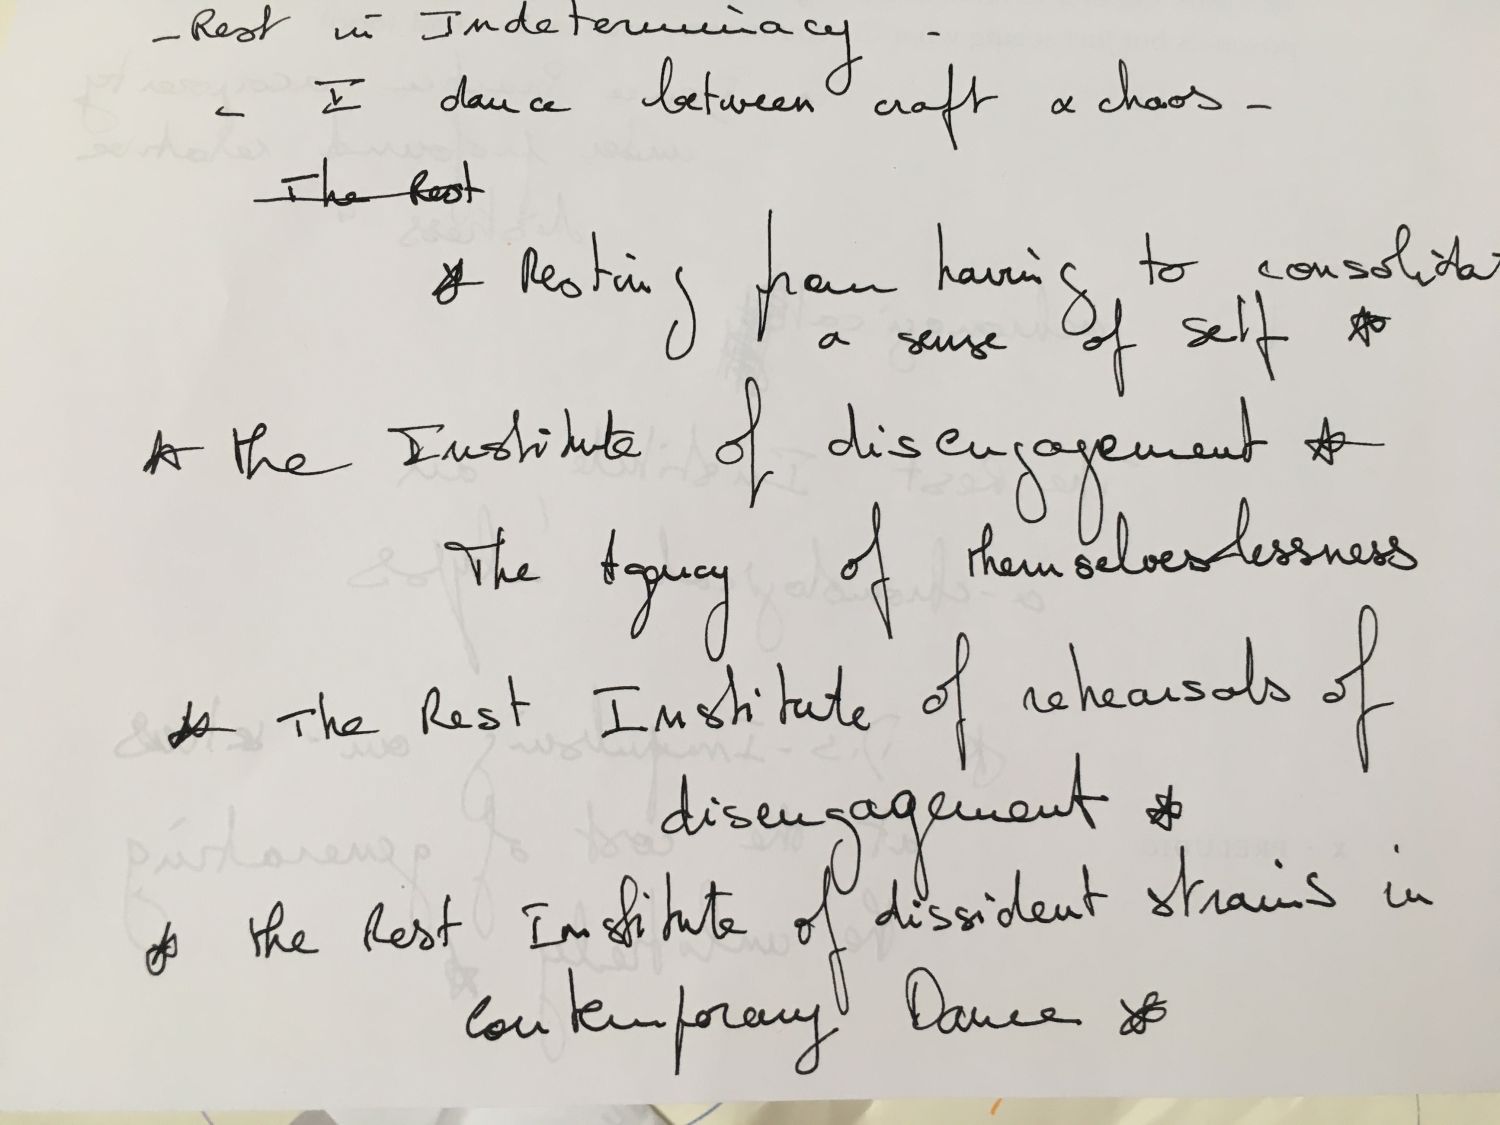 - Rest in Indeterminacy -
- I dance between craft & chaos -
The Rest
* Resting from having to consolidat
a sense of self *
* the Institute of disengagement *
The Agency of themselveslessness
* The Rest Institute of rehearsals of
disengagement *
* the Rest Institute of dissident strains in
contemporary Dance *